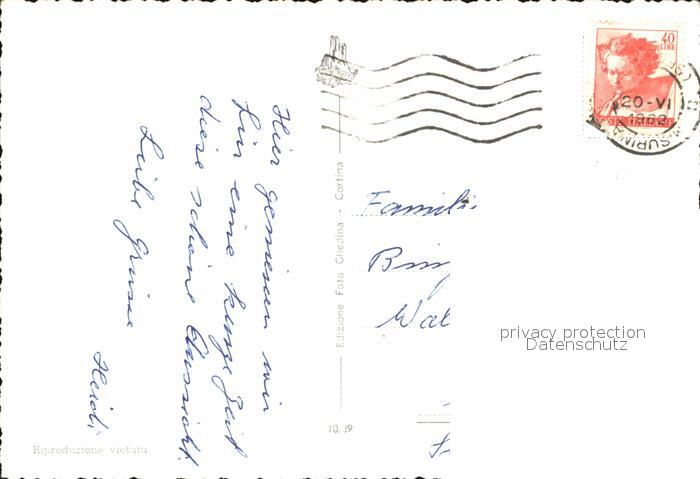 Hier geniesen wir
für eine kurze Zeit
diese schöne Aussicht.
Liebe Grüsse
Heidi
Riproduzione vietata
Edizione Foto Ghedina - Cortina
10.39
40
LIRE
20-VI
1962
MISURINA
Familie
privacy protection
Datenschutz